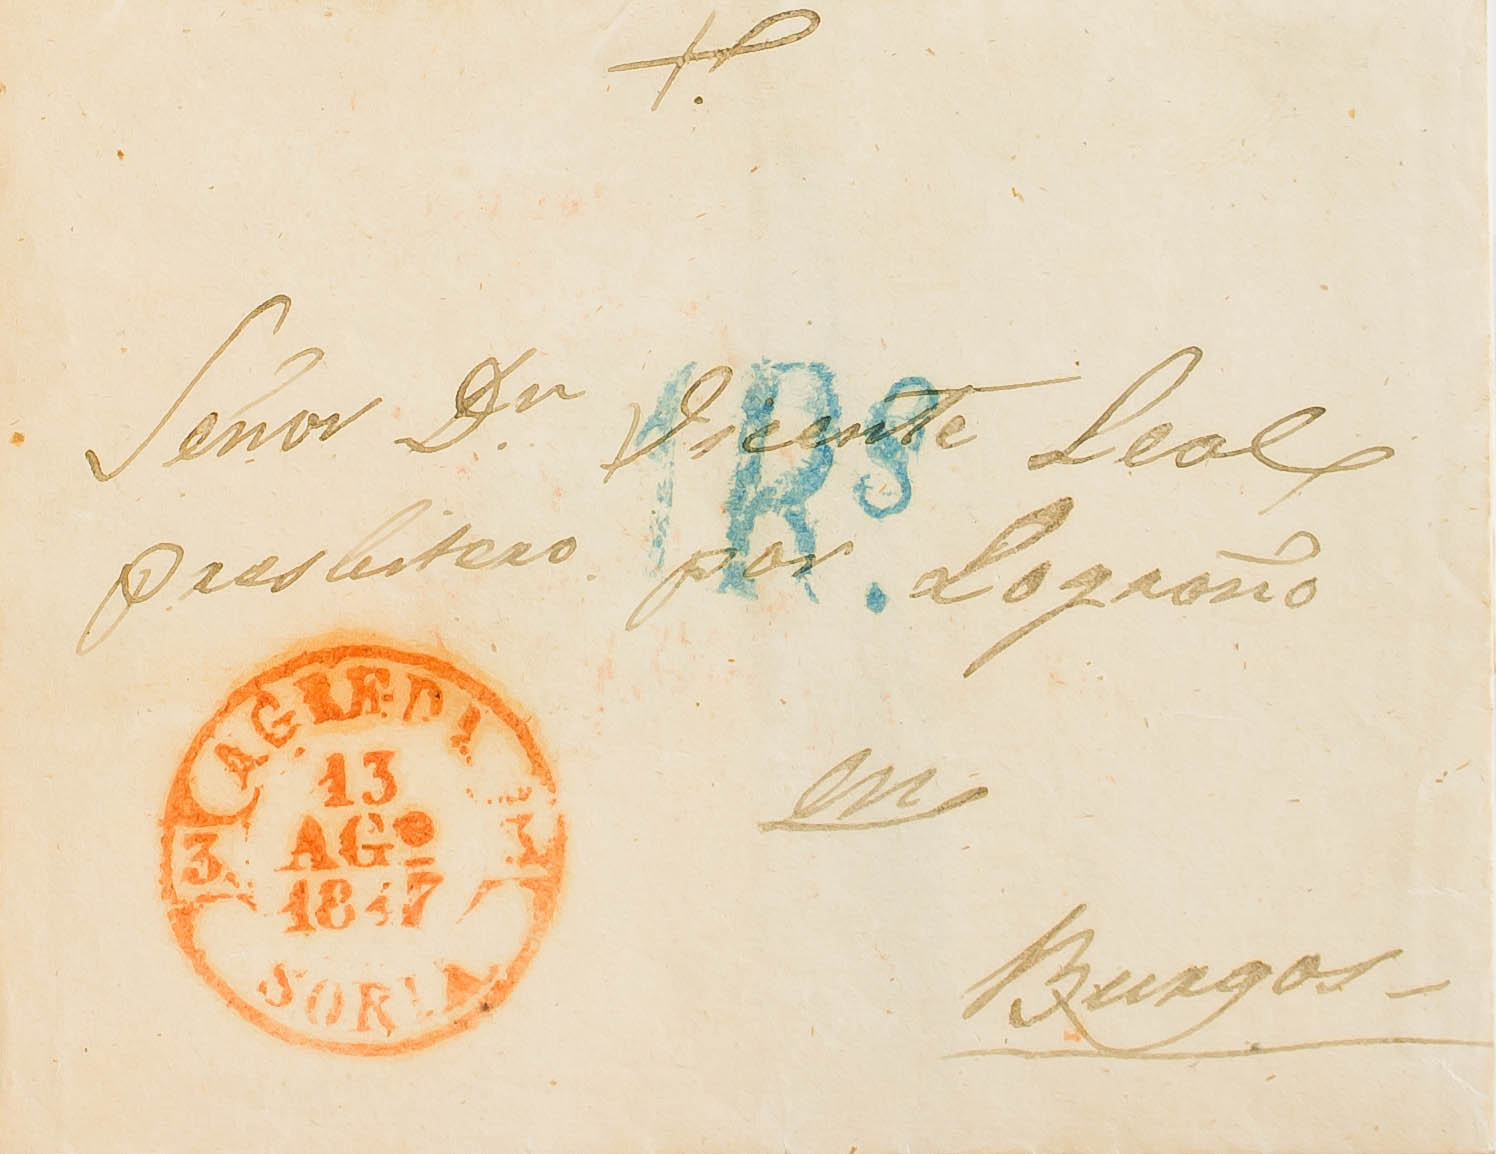 Señor Dn Vicente Leal
presbitero. por Logroño
en
Burgos
1Rs.
AGREDA
13
AGO
1847
3
SORIA